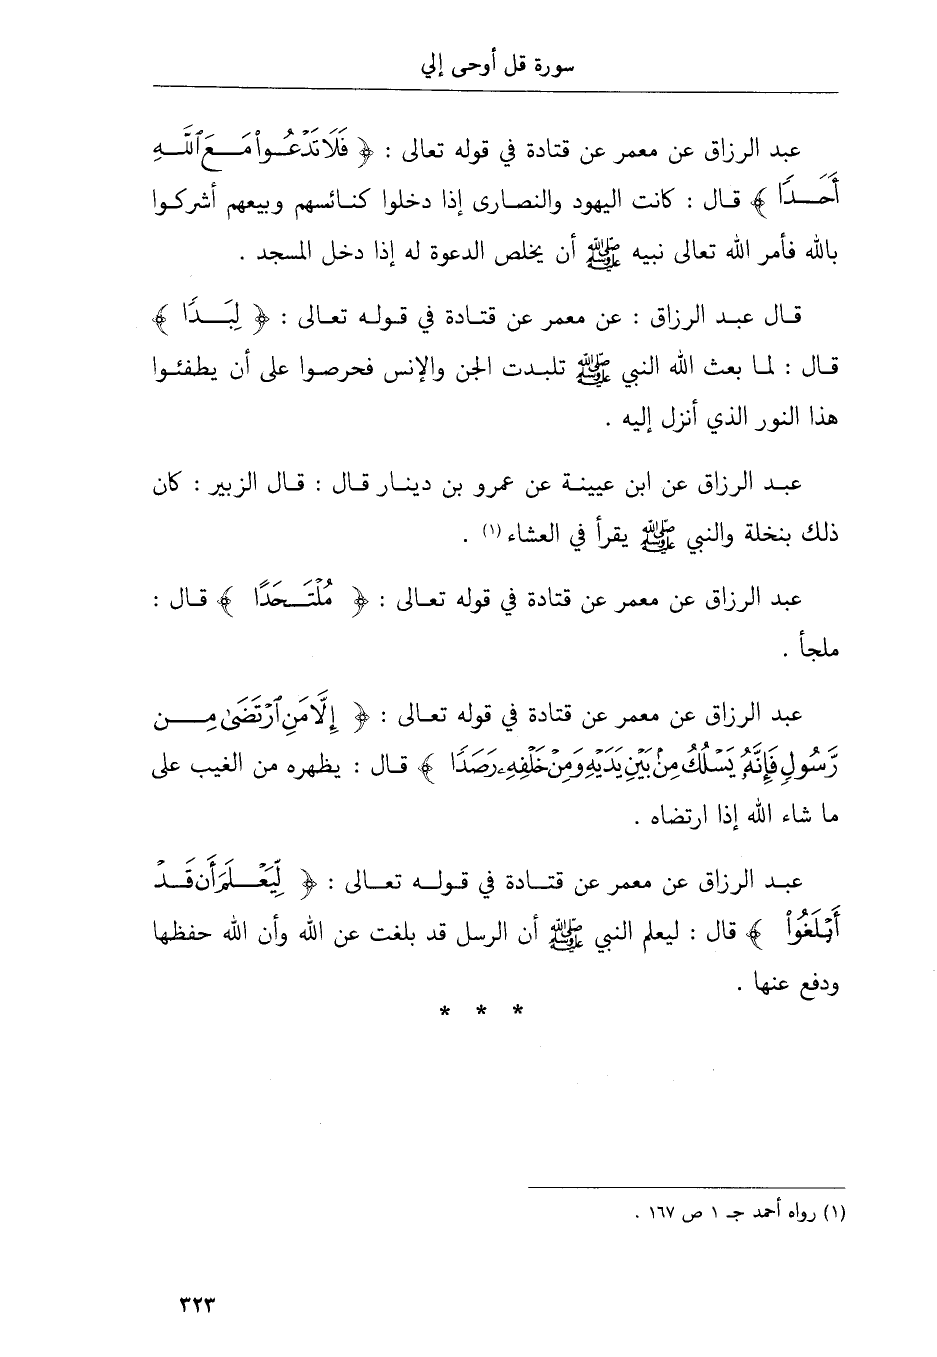 سورة قل أوحى إلي
عبد الرزاق عن معمر عن قتادة في قوله تعالى : ﴿ فَلَا تَدْعُوا۟ مَعَ ٱللَّهِ
أَحَدًا ﴾ قال : كانت اليهود والنصارى إذا دخلوا كنائسهم وبيعهم أشركوا
بالله فأمر الله تعالى نبيه ﷺ أن يخلص الدعوة له إذا دخل المسجد .
قال عبد الرزاق : عن معمر عن قتادة في قوله تعالى : ﴿ لِبَدًا ﴾
قال : لما بعث الله النبي ﷺ تلبدت الجن والإنس فحرصوا على أن يطفئوا
هذا النور الذي أنزل إليه .
عبد الرزاق عن ابن عيينة عن عمرو بن دينار قال : قال الزبير : كان
ذلك بنخلة والنبي ﷺ يقرأ في العشاء (١) .
عبد الرزاق عن معمر عن قتادة في قوله تعالى : ﴿ مُلْتَحَدًا ﴾ قال :
ملجأ .
عبد الرزاق عن معمر عن قتادة في قوله تعالى : ﴿ إِلَّا مَنِ ٱرْتَضَىٰ مِن
رَّسُولٍ فَإِنَّهُۥ يَسْلُكُ مِنۢ بَيْنِ يَدَيْهِ وَمِنْ خَلْفِهِۦ رَصَدًا ﴾ قال : يظهره من الغيب على
ما شاء الله إذا ارتضاه .
عبد الرزاق عن معمر عن قتادة في قوله تعالى : ﴿ لِّيَعْلَمَ أَن قَدْ
أَبْلَغُوا۟ ﴾ قال : ليعلم النبي ﷺ أن الرسل قد بلغت عن الله وأن الله حفظها
ودفع عنها .
* * *
(١) رواه أحمد جـ ١ ص ١٦٧ .
٣٢٣